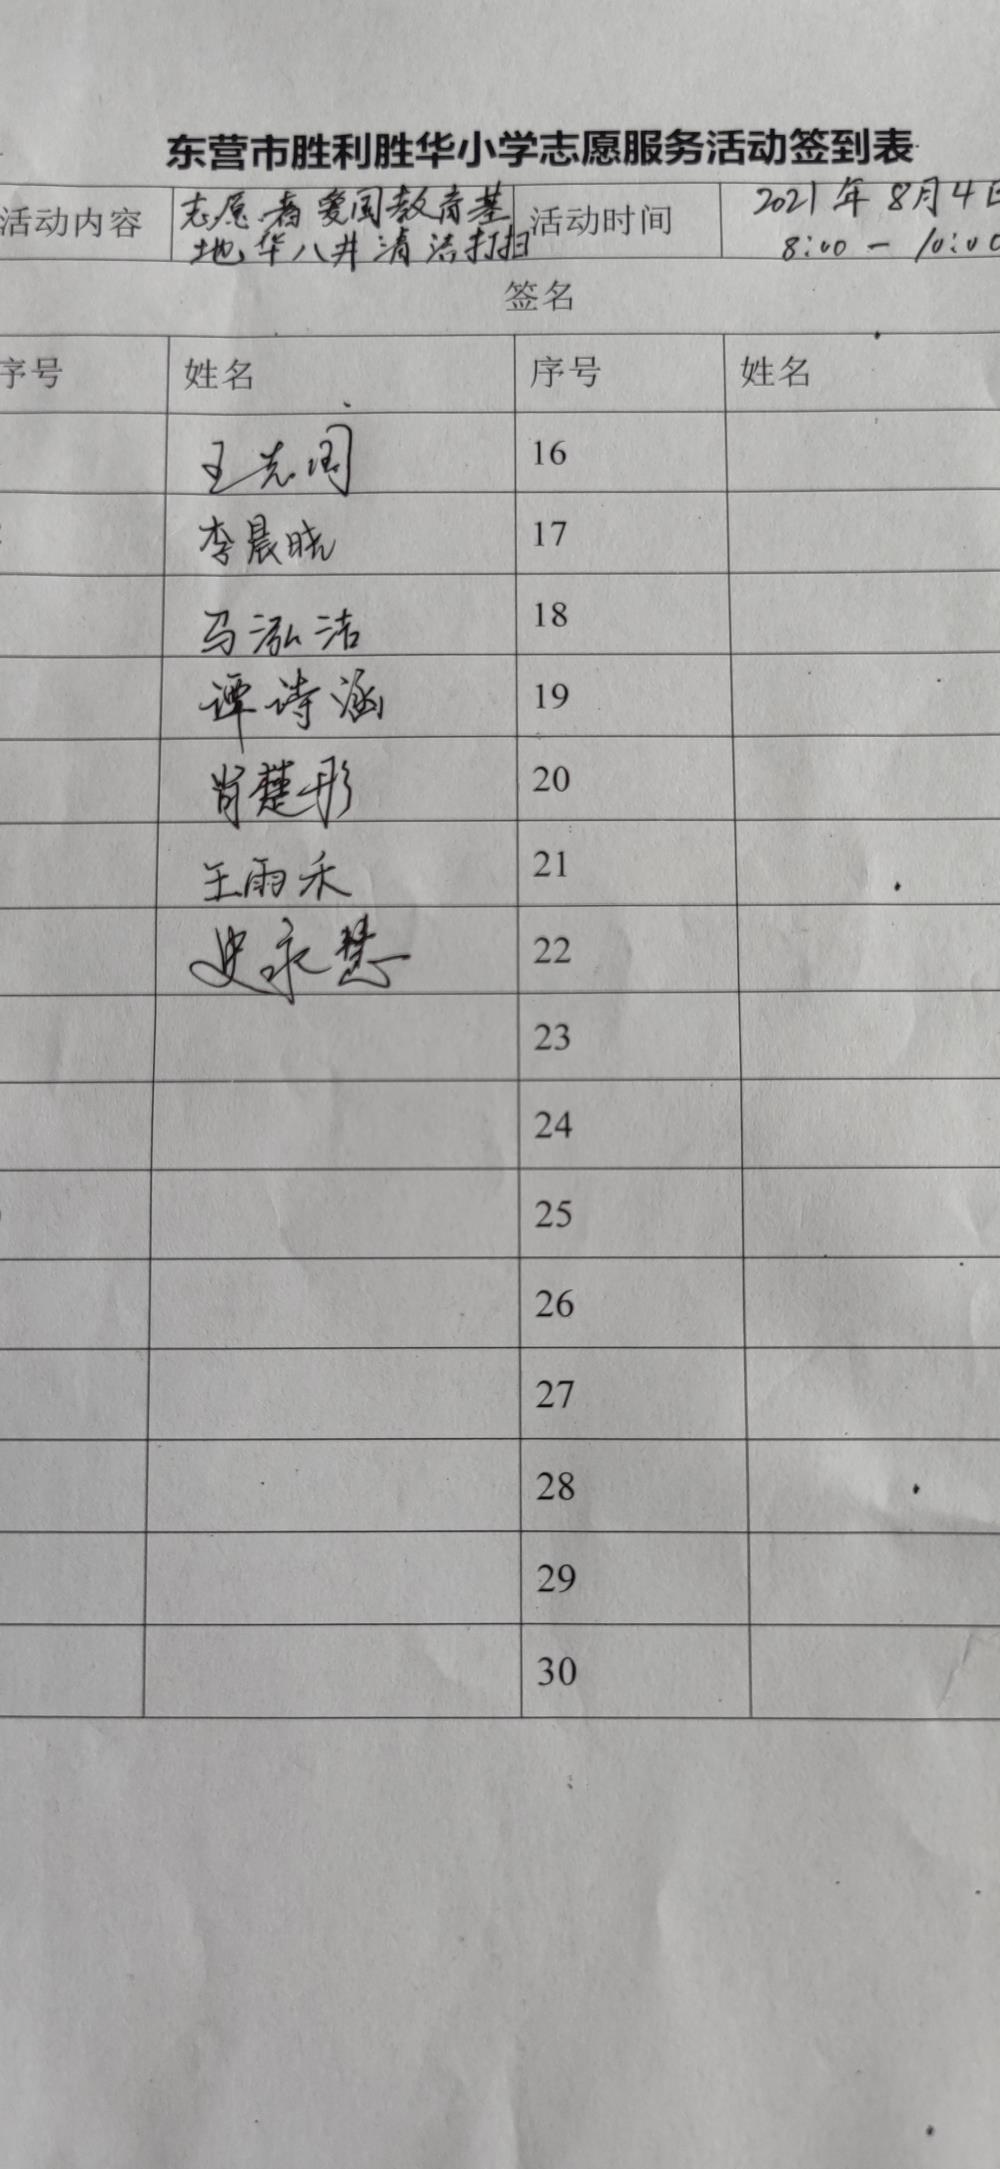 东营市胜利胜华小学志愿服务活动签到表
活动内容 志愿者爱国教育基地华八井清洁打扫 活动时间 2021年8月4日 8:00-10:00
签名
序号 姓名 序号 姓名
王 16
李晨晓 17
马泓洁 18
谭诗涵 19
肖楚彤 20
王雨禾 21
史永慧 22
23
24
25
26
27
28
29
30